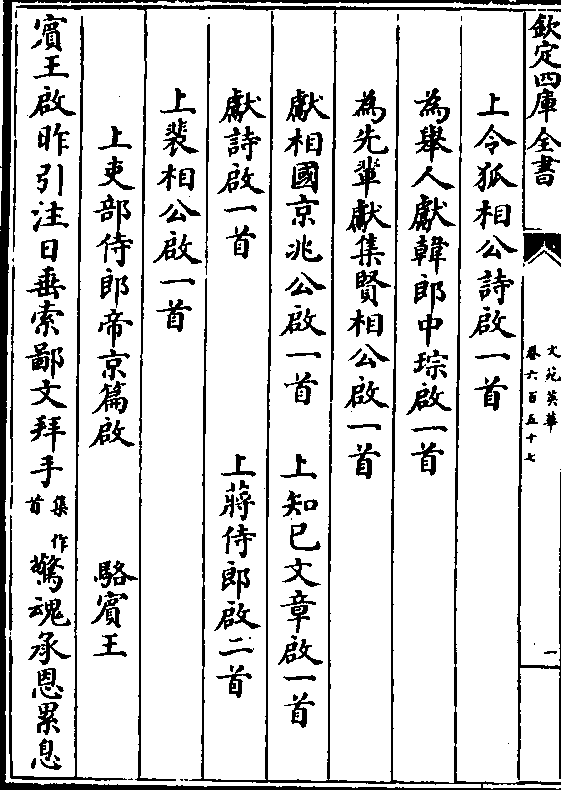 欽定四庫全書
文苑英華
卷六百五十七
一
上令狐相公詩啟一首
為舉人獻韓郎中琮啟一首
為先輩獻集賢相公啟一首
獻相國京兆公啟一首 上知已文章啟一首
獻詩啟一首 上蔣侍郎啟二首
上裴相公啟一首
上吏部侍郎帝京篇啟 駱賓王
賓王啟昨引注日垂索鄙文拜手集作首驚魂承恩累息